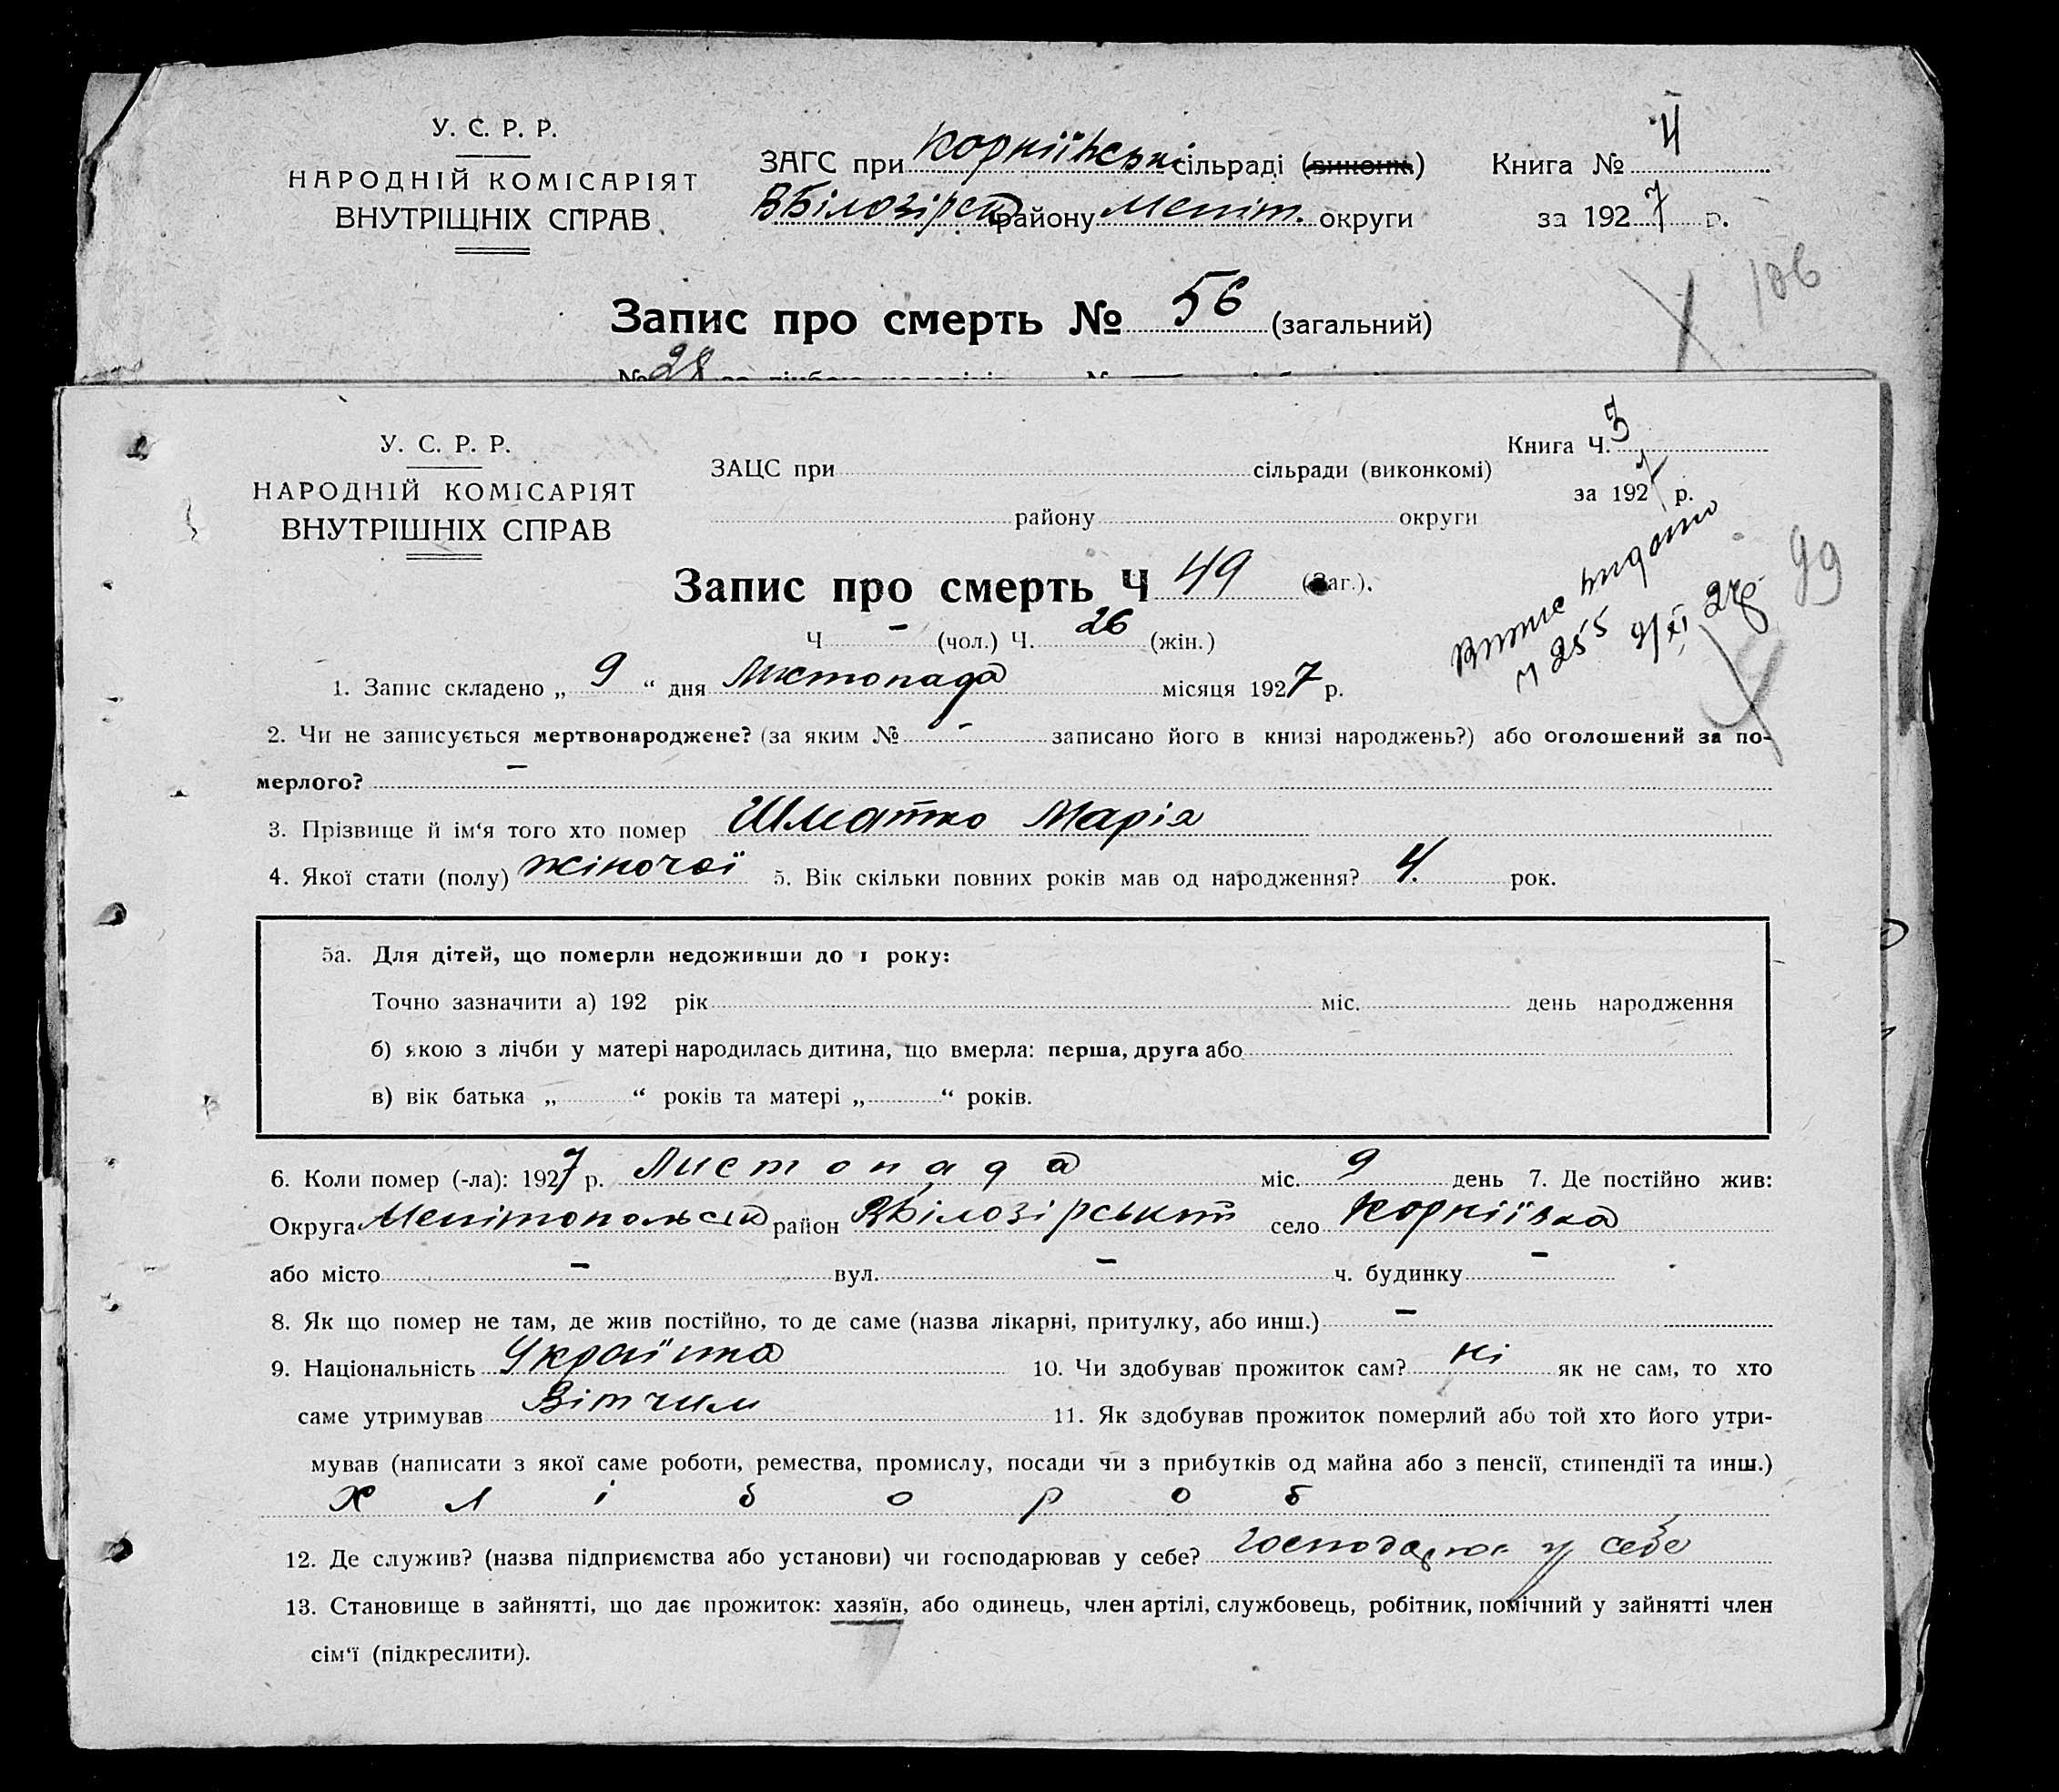 У. С. Р. Р.
НАРОДНІЙ КОМІСАРІЯТ
ВНУТРІЩНІХ СПРАВ
ЗАГС при Корніївські сільраді (виконк.)
ВБілозірськ району Меліт. округи
Книга № 4
за 1927 р.
106
Запис про смерть № 56 (загальний)
№ 28
У. С. Р. Р.
НАРОДНІЙ КОМІСАРІЯТ
ВНУТРІШНІХ СПРАВ
ЗАЦС при сільради (виконкомі)
району округи
Книга Ч. 3
за 1927 р.
Витис видано
Ч 255 9/XI 27р
99
Запис про смерть Ч 49 (Заг.).
Ч - (чол.) Ч. 26 (жін.)
1. Запис складено „ 9 “ дня Листопада місяця 1927 р.
2. Чи не записується мертвонароджене? (за яким № - записано його в книзі народжень?) або оголошений за по-
мерлого? -
3. Прізвище й ім‘я того хто помер Шматко Марія
4. Якої стати (полу) жіночої 5. Вік скільки повних років мав од народження? 4. рок.
5а. Для дітей, що померли недоживши до 1 року:
Точно зазначити а) 192 рік міс. день народження
б) якою з лічби у матері народилась дитина, що вмерла: перша, друга або
в) вік батька „ “ років та матері „ “ років.
6. Коли помер (-ла): 1927 р. Листопада міс. 9 день 7. Де постійно жив:
Округа Мелітопольськ район ВБілозірський село Корніївка
або місто - вул. - ч. будинку -
8. Як що помер не там, де жив постійно, то де саме (назва лікарні, притулку, або инш.) -
9. Національність Українка 10. Чи здобував прожиток сам? ні як не сам, то хто
саме утримував Вітчим 11. Як здобував прожиток померлий або той хто його утри-
мував (написати з якої саме роботи, ремества, промислу, посади чи з прибутків од майна або з пенсії, стипендії та инш.)
Хлібороб
12. Де служив? (назва підприємства або установи) чи господарював у себе? господарює у себе
13. Становище в зайнятті, що дає прожиток: хазяїн, або одинець, член артілі, службовець, робітник, помічний у зайнятті член
сім‘ї (підкреслити).